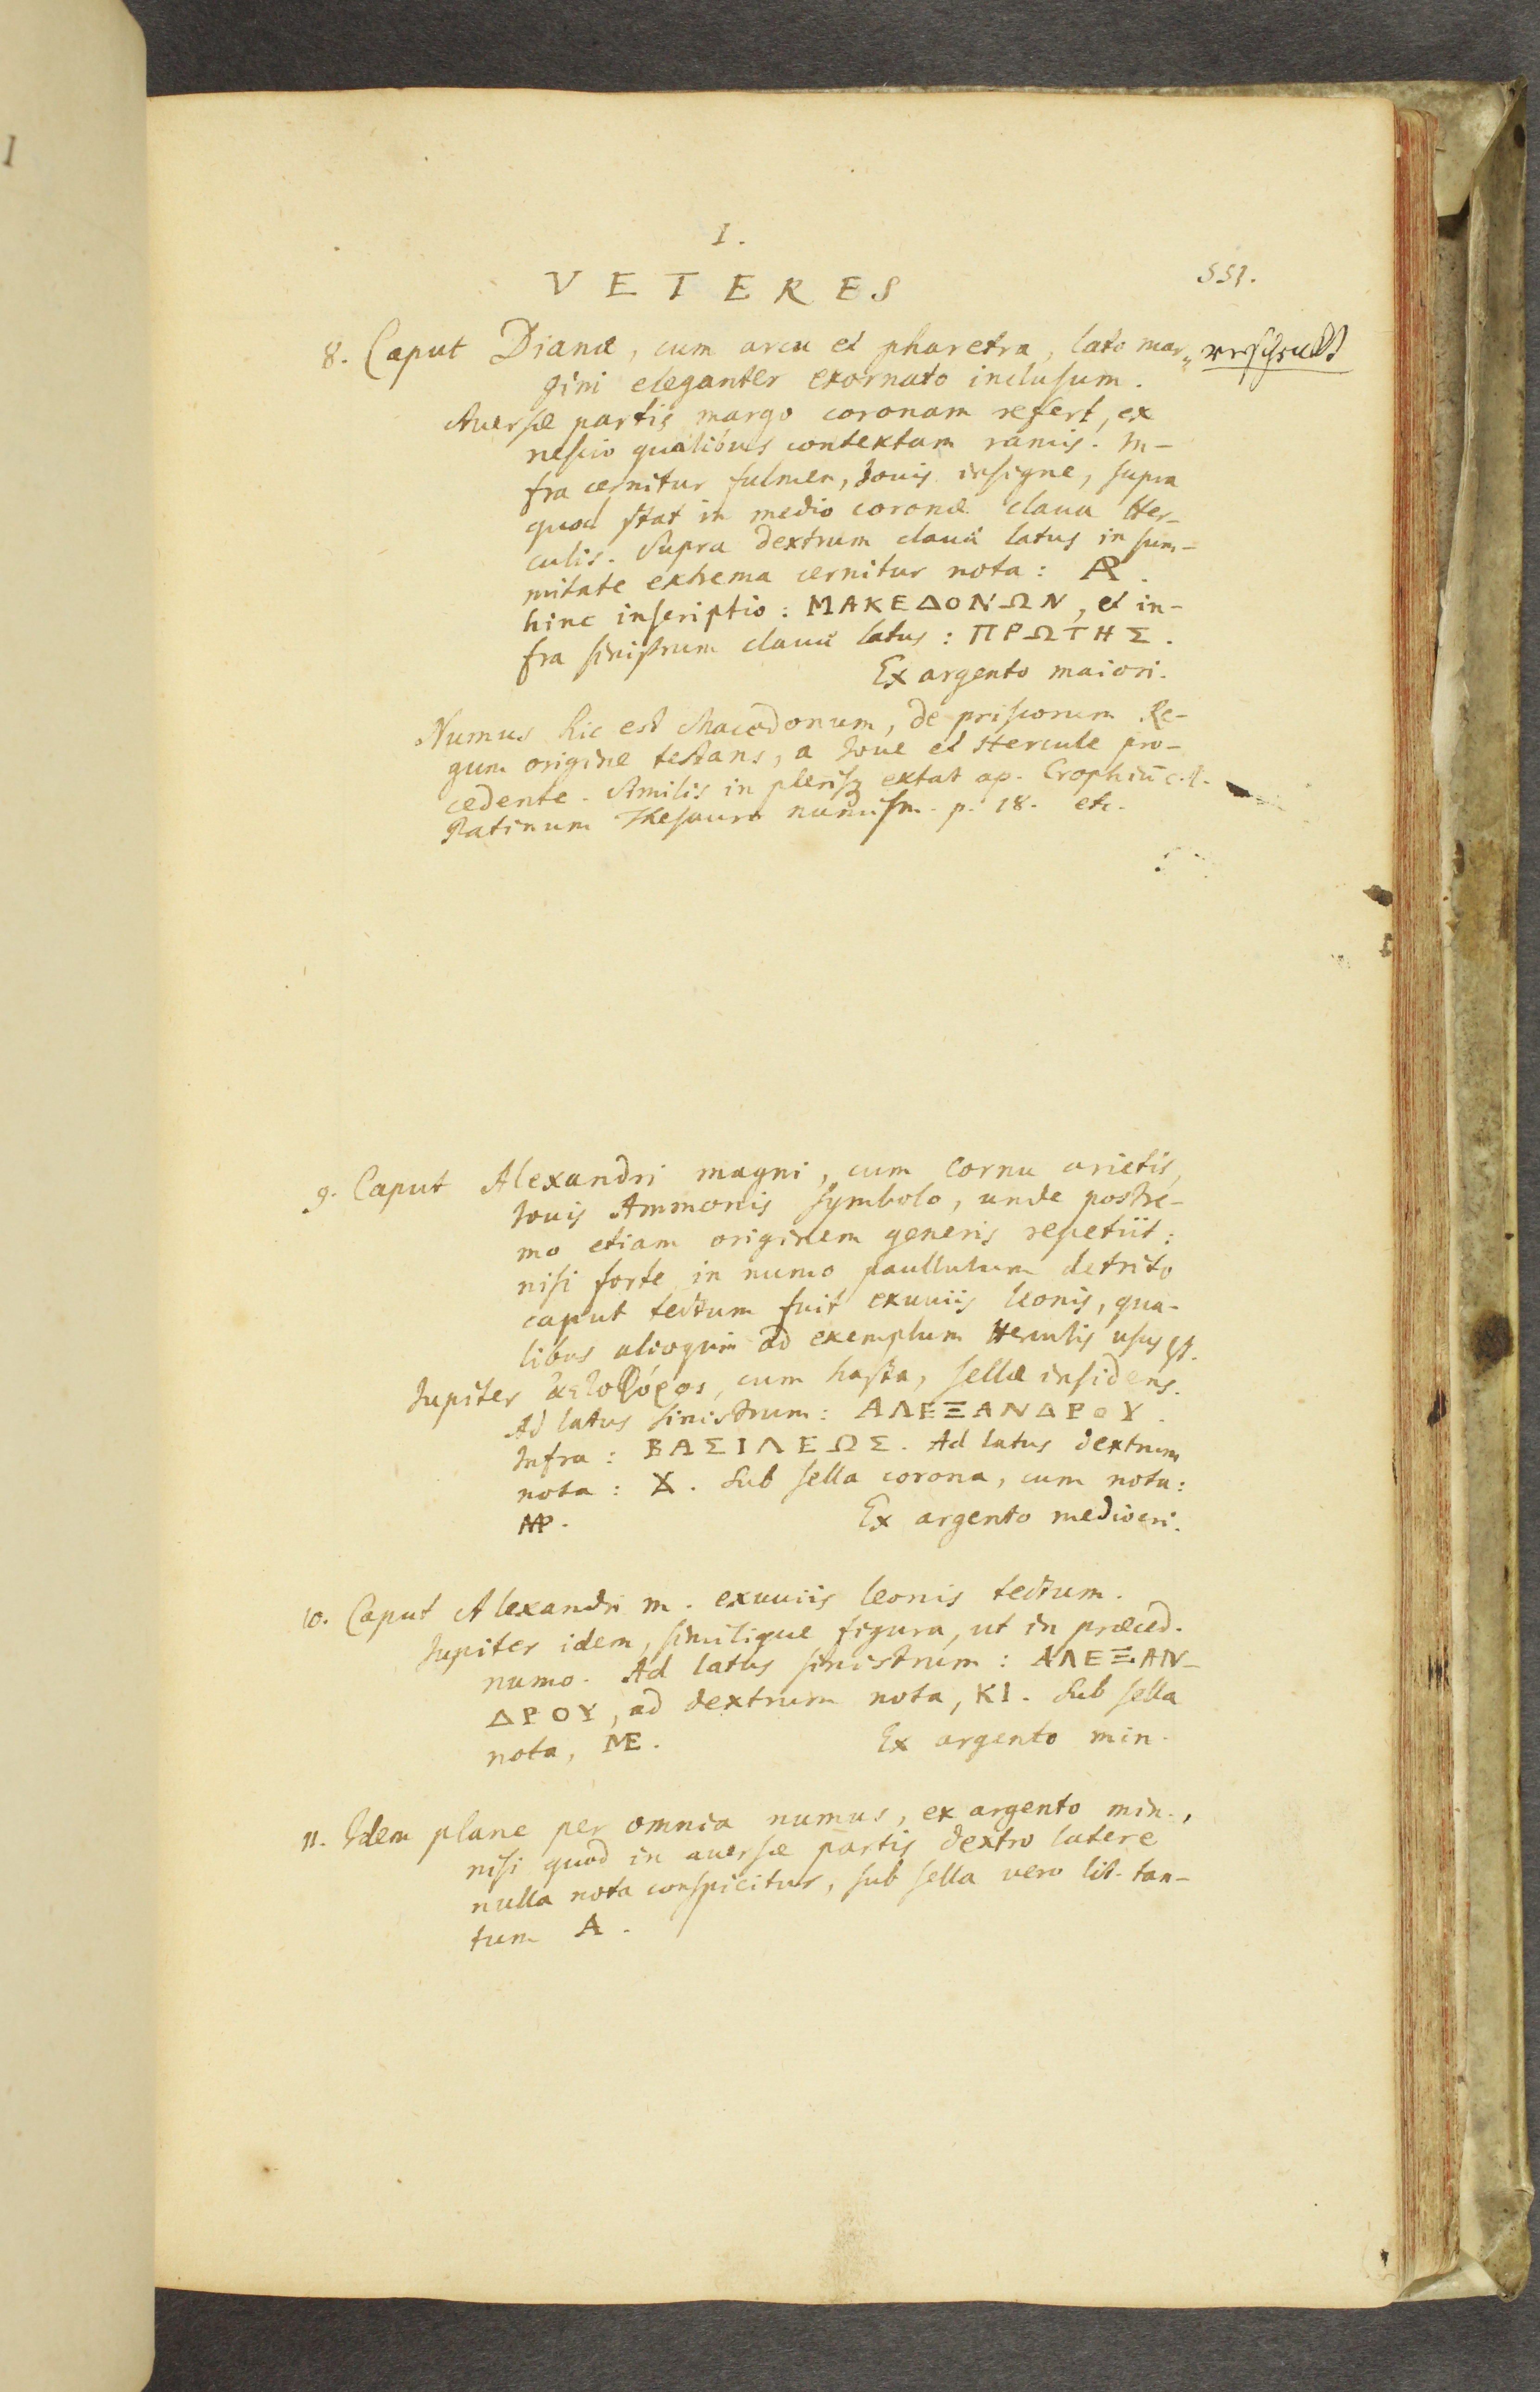 I.
VETERES
551.
8. Caput Dianæ, cum arcu et pharetra, lato mar-
gini eleganter exornato inclusum.
Auersæ partis margo coronam refert, ex
nescio qualibus contextam ramis. In-
fra cernitur fulmen, Jouis insigne, supra
quod stat in medio coronæ claua Her-
culis. Supra dextrum clauæ latus in sum-
mitate extrema cernitur nota:
hinc inscriptio: ΜΑΚΕΔΟΝΩΝ, et in-
fra sinistrum clauæ latus: ΠΡΩΤΗΣ.
Ex argento maiori.
Numus hic est Macedonum, de priscorum Re-
gum origine testans, a Joue et Hercule pro-
cedente. Similis in plerisq extat ap. Crophiū c.l.
Patinum Thesauro numism. p. 18. etc.
9. Caput Alexandri magni, cum cornu arietis,
Jouis Ammonis symbolo, unde postre-
mo etiam originem generis repetiit:
nisi forte in numo paullulum detrito
caput tectum fuit exuuiis leonis, qua-
libus alioquin ad exemplum Herculis usus est.
Jupiter ἀετοφόρος, cum hasta, sellæ insidens.
Ad latus sinistrum: ΑΛΕΞΑΝΔΡΟΥ.
Infra: ΒΑΣΙΛΕΩΣ. Ad latus dextrum
nota: . Sub sella corona, cum nota:
Ex argento mediocri.
10. Caput Alexandri m. exuuiis leonis tectum.
Jupiter idem, similique figura, ut in præced.
numo. Ad latus sinistrum: ΑΛΕΞΑΝ-
ΔΡΟΥ, ad dextrum nota, ΚΙ. Sub sella
nota, ME.
Ex argento min.
11. Idem plane per omnia numus, ex argento min.,
nisi quod in auersæ partis dextro latere
nulla nota conspicitur, sub sella vero lit. tan-
tum A.